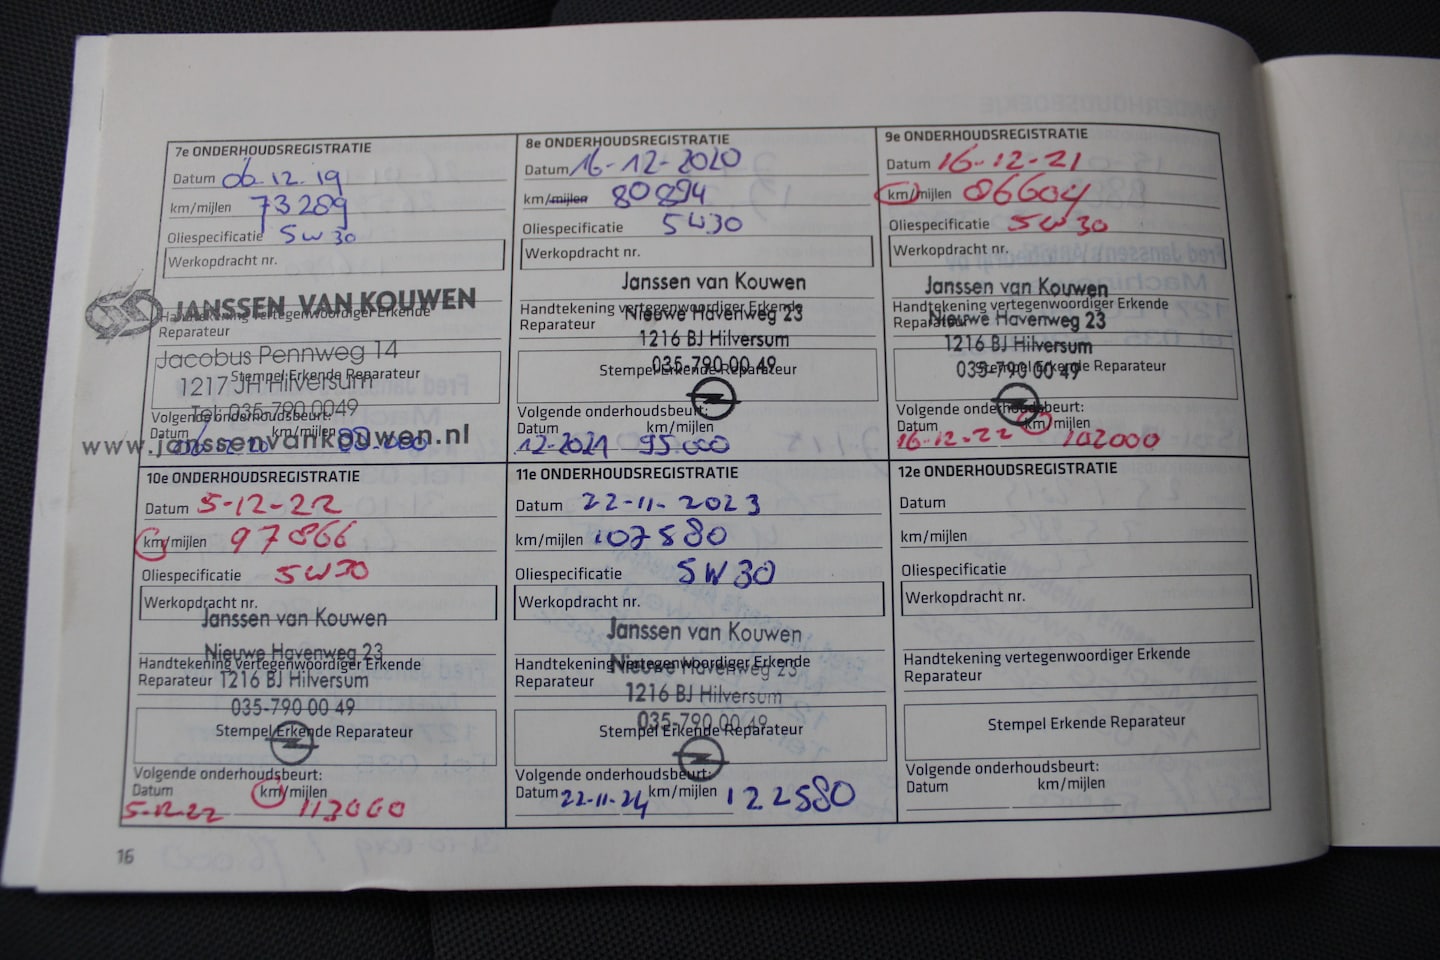 7e ONDERHOUDSREGISTRATIE
Datum 06.12.19
km/mijlen 73289
Oliespecificatie 5W30
Werkopdracht nr.
JANSSEN VAN KOUWEN
Handtekening vertegenwoordiger Erkende
Reparateur
Jacobus Pennweg 14
Stempel Erkende Reparateur
1217 JH Hilversum
Tel: 035-790 0049
Volgende onderhoudsbeurt:
Datum km/mijlen
www.janssenvankouwen.nl
8e ONDERHOUDSREGISTRATIE
Datum 16-12-2020
km/mijlen 80894
Oliespecificatie 5W30
Werkopdracht nr.
Janssen van Kouwen
Handtekening vertegenwoordiger Erkende
Nieuwe Havenweg 23
Reparateur
1216 BJ Hilversum
035-790 00 49
Stempel Erkende Reparateur
Volgende onderhoudsbeurt:
Datum km/mijlen
12-2021 95.000
9e ONDERHOUDSREGISTRATIE
Datum 16-12-21
km/mijlen 86604
Oliespecificatie 5W30
Werkopdracht nr.
Janssen van Kouwen
Handtekening vertegenwoordiger Erkende
Reparateur
Nieuwe Havenweg 23
1216 BJ Hilversum
035-790 00 49
Stempel Erkende Reparateur
Volgende onderhoudsbeurt:
Datum km/mijlen
16-12-22 102000
10e ONDERHOUDSREGISTRATIE
Datum 5-12-22
km/mijlen 97866
Oliespecificatie 5W30
Werkopdracht nr.
Janssen van Kouwen
Nieuwe Havenweg 23
Handtekening vertegenwoordiger Erkende
Reparateur
1216 BJ Hilversum
035-790 00 49
Stempel Erkende Reparateur
Volgende onderhoudsbeurt:
Datum km/mijlen
5-12-22 113000
11e ONDERHOUDSREGISTRATIE
Datum 22-11-2023
km/mijlen 107580
Oliespecificatie 5W30
Werkopdracht nr.
Janssen van Kouwen
Handtekening vertegenwoordiger Erkende
Nieuwe Havenweg 23
Reparateur
1216 BJ Hilversum
035-790 00 49
Stempel Erkende Reparateur
Volgende onderhoudsbeurt:
Datum 22-11-24 km/mijlen 122580
12e ONDERHOUDSREGISTRATIE
Datum
km/mijlen
Oliespecificatie
Werkopdracht nr.
Handtekening vertegenwoordiger Erkende
Reparateur
Stempel Erkende Reparateur
Volgende onderhoudsbeurt:
Datum km/mijlen
16